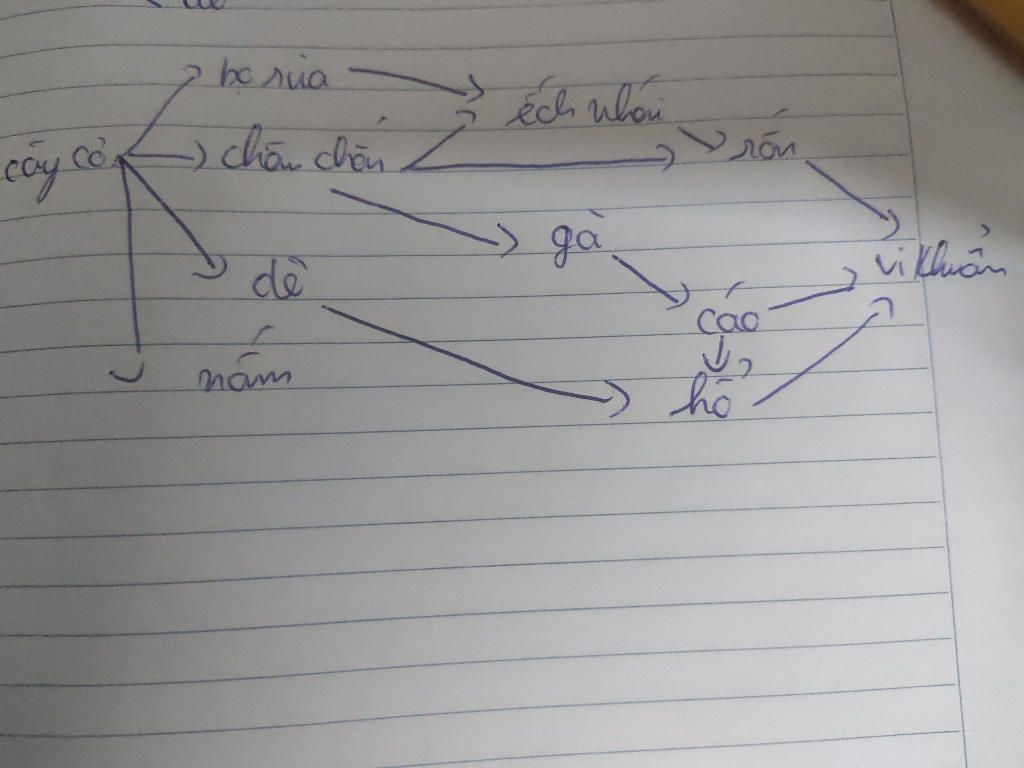 bọ rùa
ếch nhái
cây cỏ châu chấu rắn
gà
vi khuẩn
dê
cáo
nấm
hổ